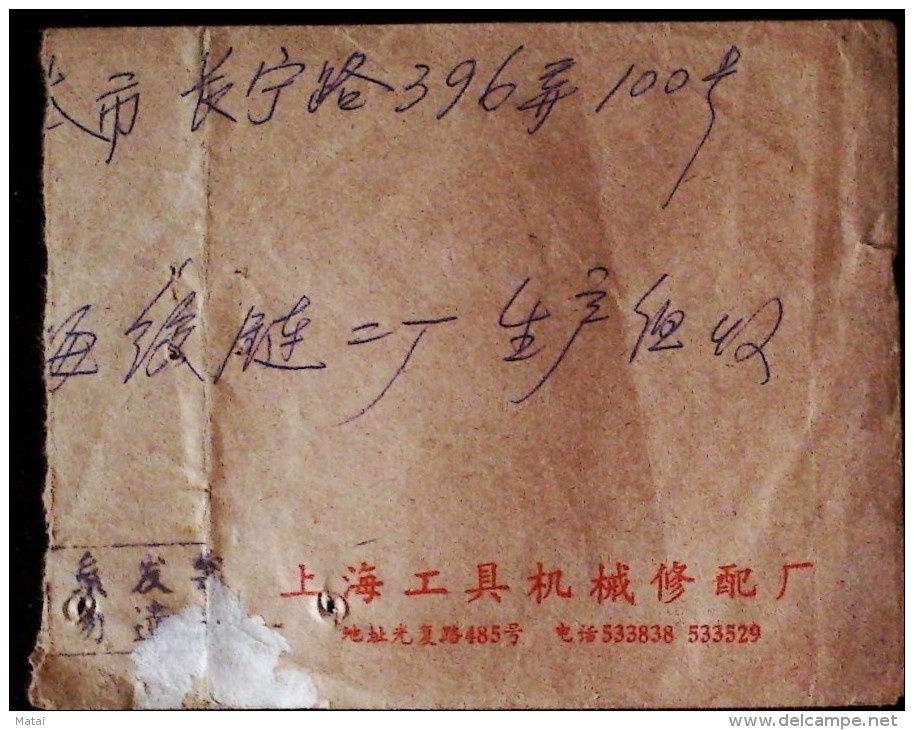 市 长宁路396弄 100号
海 链二厂 生产组收
发
上海工具机械修配厂
地址光复路485号 电话533838 533529
Matai
delcampe.net